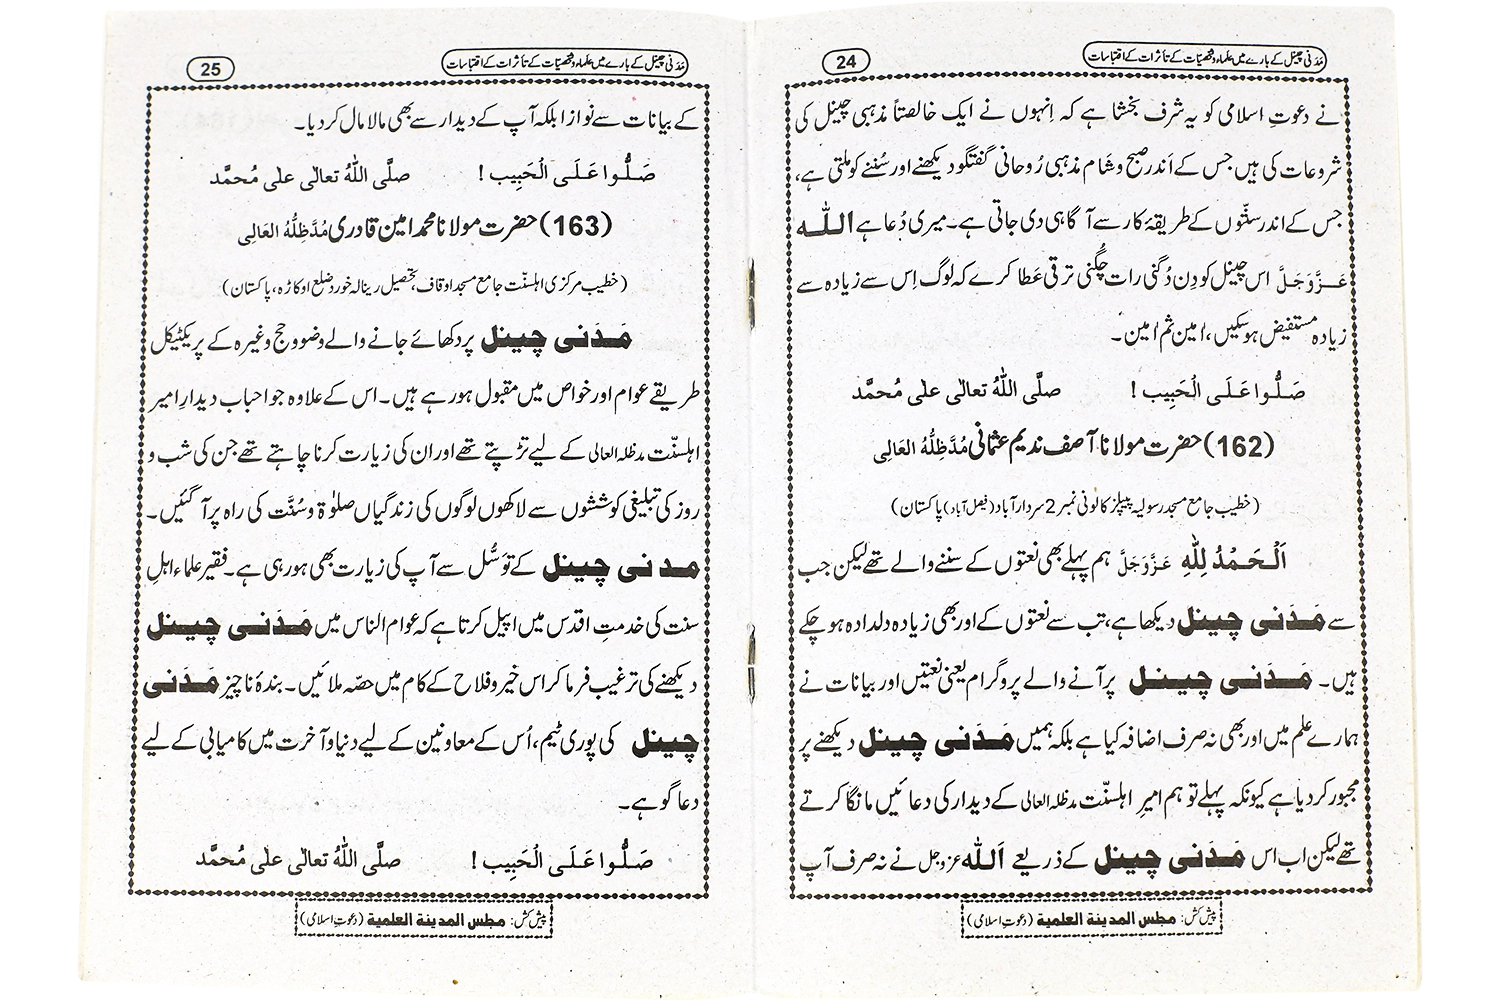 مَدَنی چینل کے بارے میں علماء وشخصیّات کے تأثرات کے اقتباسات
24
نے دعوتِ اسلامی کو یہ شرف بخشا ہے کہ اِنہوں نے ایک خالصتاً مذہبی چینل کی
شروعات کی ہیں جس کے اَندر صبح وشام مذہبی رُوحانی گفتگو دیکھنے اور سُننے کو ملتی ہے،
جس کے اندر سنّتوں کے طریقۂ کار سے آگاہی دی جاتی ہے۔ میری دُعا ہے اللہ
عَزَّوَجَلَّ اس چینل کو دِن دُگنی رات چگنی ترقی عطا کرے کہ لوگ اِس سے زیادہ سے
زیادہ مستفیض ہوسکیں، امین ثم امین۔
صَلُّوا عَلَی الْحَبِیب ! صلَّی اللّٰهُ تعالٰی علٰی مُحمَّد
(162) حضرت مولانا آصف ندیم عثمانی مُدَّظِلُّهُ العَالِی
(خطیب جامع مسجد رسولیہ پیپلز کالونی نمبر 2 سردار آباد (فیصل آباد) پاکستان)
اَلْحَمْدُ لِلّٰهِ عَزَّوَجَلَّ ہم پہلے بھی نعتوں کے سننے والے تھے لیکن جب
سے مَدَنی چینل دیکھا ہے، تب سے نعتوں کے اور بھی زیادہ دلدادہ ہو چکے
ہیں۔ مَدَنی چینل پر آنے والے پروگرام یعنی نعتیں اور بیانات نے
ہمارے علم میں اور بھی نہ صرف اضافہ کیا ہے بلکہ ہمیں مَدَنی چینل دیکھنے پر
مجبور کر دیا ہے کیونکہ پہلے تو ہم امیرِ اہلسنّت مدظلہ العالی کے دیدار کی دعائیں مانگا کرتے
تھے لیکن اب اس مَدَنی چینل کے ذریعے اَللہ عزوجل نے نہ صرف آپ
پیش کش: مجلس المدینة العلمیة (دعوتِ اسلامی)
مَدَنی چینل کے بارے میں علماء وشخصیّات کے تأثرات کے اقتباسات
25
کے بیانات سے نوازا بلکہ آپ کے دیدار سے بھی مالا مال کر دیا۔
صَلُّوا عَلَی الْحَبِیب ! صلَّی اللّٰهُ تعالٰی علٰی مُحمَّد
(163) حضرت مولانا محمد امین قادری مُدَّظِلُّهُ العَالِی
(خطیب مرکزی اہلسنّت جامع مسجد اوقاف، تحصیل رینالہ خورد ضلع اوکاڑہ، پاکستان)
مَدَنی چینل پر دکھائے جانے والے وضو وحج وغیرہ کے پریکٹیکل
طریقے عوام اور خواص میں مقبول ہو رہے ہیں۔ اس کے علاوہ جو احباب دیدارِ امیر
اہلسنّت مدظلہ العالی کے لیے تڑپتے تھے اور ان کی زیارت کرنا چاہتے تھے جن کی شب و
روز کی تبلیغی کوششوں سے لاکھوں لوگوں کی زندگیاں صلوٰۃ وسُنَّت کی راہ پر آگئیں۔
مدنی چینل کے توسُّل سے آپ کی زیارت بھی ہو رہی ہے۔ فقیر علماء اہلِ
سنت کی خدمتِ اقدس میں اپیل کرتا ہے کہ عوام الناس میں مَدَنی چینل
دیکھنے کی ترغیب فرما کر اس خیر وفلاح کے کام میں حصّہ ملائیں۔ بندۂ ناچیز مَدَنی
چینل کی پوری ٹیم، اُس کے معاونین کے لیے دنیا و آخرت میں کامیابی کے لیے
دعا گو ہے۔
صَلُّوا عَلَی الْحَبِیب ! صلَّی اللّٰهُ تعالٰی علٰی مُحمَّد
پیش کش: مجلس المدینة العلمیة (دعوتِ اسلامی)